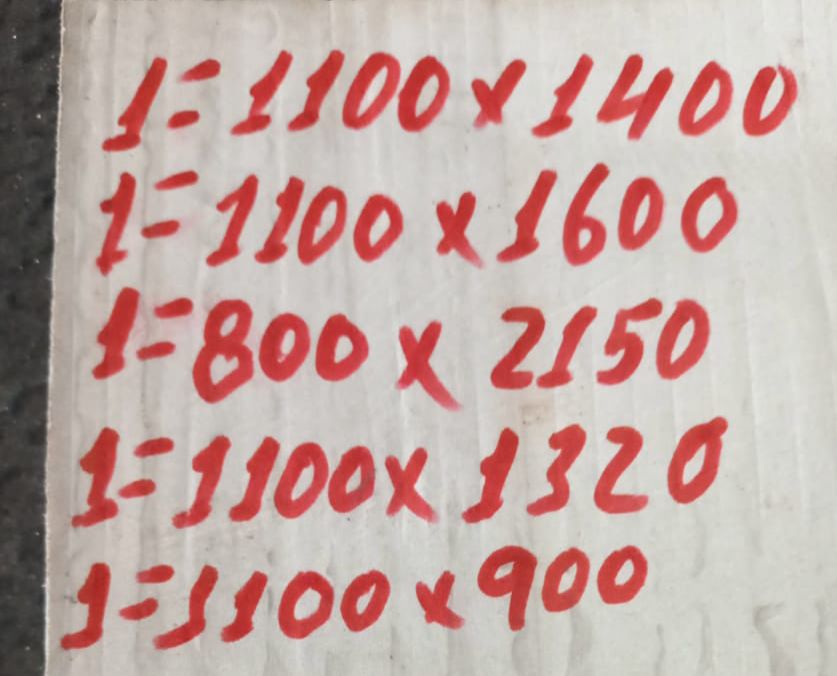 1=1100x1400
1=1100x1600
1=800x2150
1=1100x1320
1=1100x900